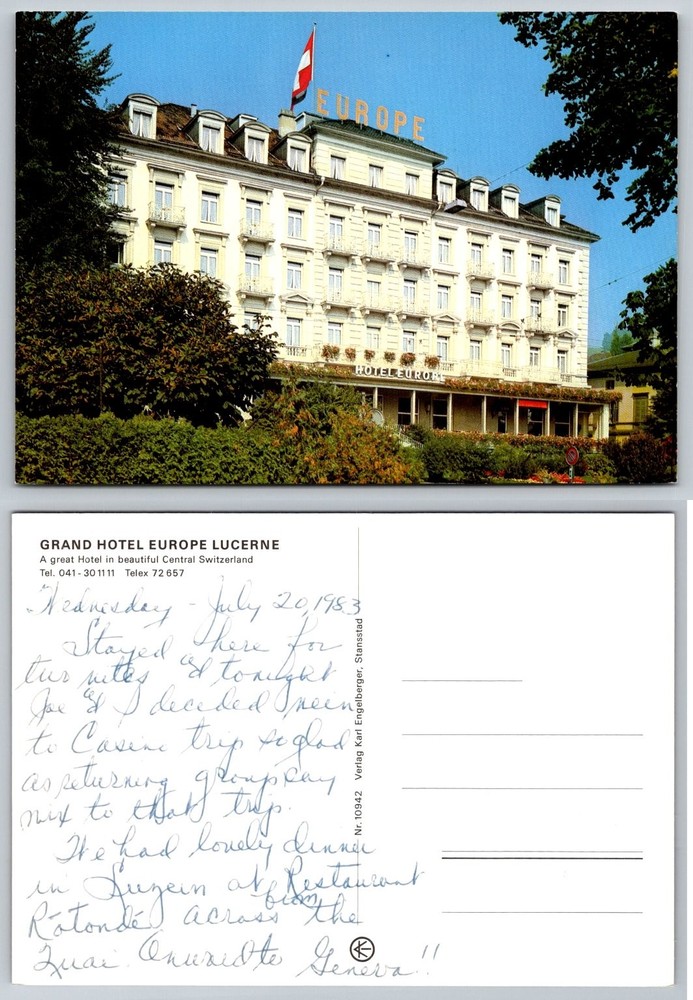 EUROPE
HOTEL EUROPE
GRAND HOTEL EUROPE LUCERNE
A great Hotel in beautiful Central Switzerland
Tel. 041-301111 Telex 72657
Wednesday - July 20, 1983
Stayed here for
two nites & tonight
Joe & I decided nein
to Casino trip so glad
as returning group say
nix to that trip.
We had lovely dinner
in Luzern at Restaurant
Rotonde across from the
Quai. Onward to Geneva!!
Nr. 10942 Verlag Karl Engelberger, Stansstad